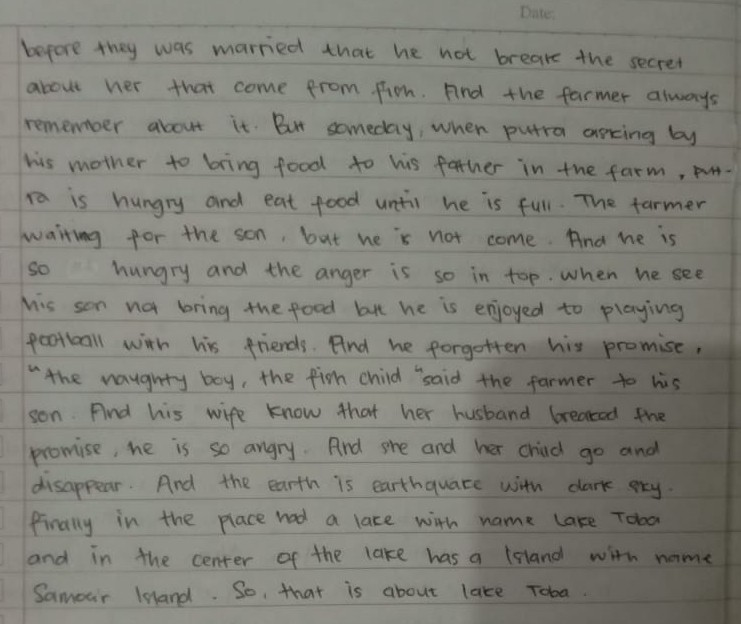 Date:
before they was married that he not break the secret
about her that come from fish. And the farmer always
remember about it. But someday, when putra asking by
his mother to bring food to his father in the farm, put-
ra is hungry and eat food until he is full. The farmer
waiting for the son, but he is not come. And he is
so hungry and the anger is so in top. when he see
his son not bring the food but he is enjoyed to playing
football with his friends. And he forgotten his promise,
"the naughty boy, the fish child "said the farmer to his
son. And his wife know that her husband breaked the
promise, he is so angry. And she and her child go and
disappear. And the earth is earthquake with dark sky.
finally in the place had a lace with name Lake Toba
and in the center of the lake has a Island with name
Samosir Island. So, that is about lake Toba.